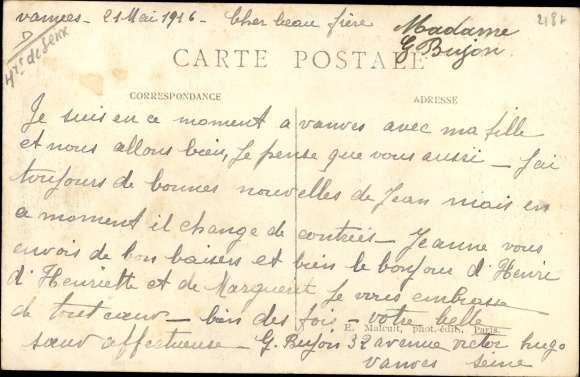 Vanves - 21 Mai 1916 - Cher beau frère
Madame
G Bujon
2187
CARTE POSTALE
CORRESPONDANCE
ADRESSE
Je suis en ce moment a vanves avec ma fille
et nous allons bien, Je pense que vous aussi - J'ai
toujours de bonnes nouvelles de Jean mais en
ce moment il change de contrées - Jeanne vous
envois de bon baisers et bien le bonjour d'Henri
d'Henriette et de Marguerit Je vous embrasse
de tout cœur - bien des fois - votre belle
E. Malcuit, phot.-édit., Paris.
sœur affectueuse - G. Bujon 32 avenue victor hugo
Vanves Seine